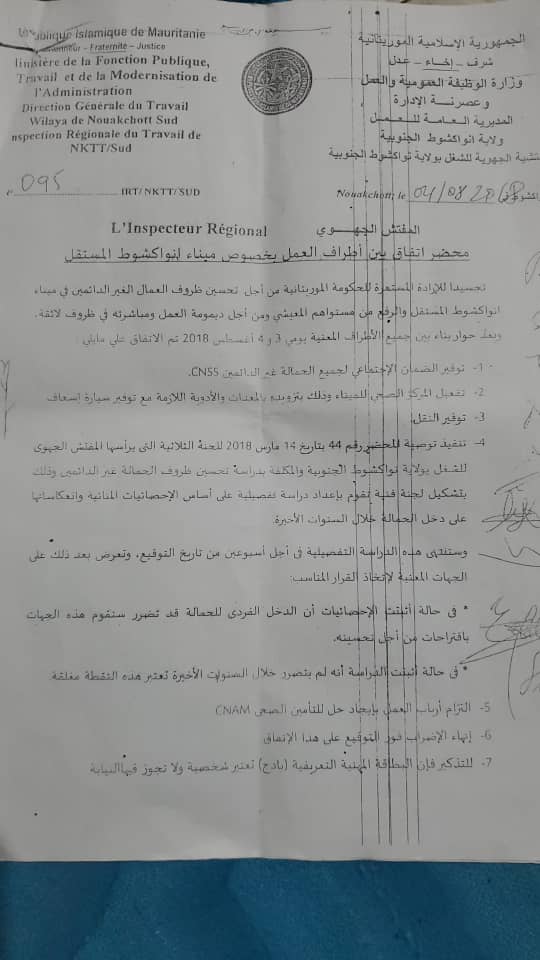 République Islamique de Mauritanie
Honneur – Fraternité – Justice
Ministère de la Fonction Publique,
Travail et de la Modernisation de
l'Administration
Direction Générale du Travail
Wilaya de Nouakchott Sud
Inspection Régionale du Travail de
NKTT/Sud
الجمهورية الإسلامية الموريتانية
شرف – إخاء – عدل
وزارة الوظيفة العمومية والعمل
وعصرنة الإدارة
المديرية العامة للعمل
ولاية انواكشوط الجنوبية
المفتشية الجهوية للشغل بولاية نواكشوط الجنوبية
095 IRT/ NKTT/SUD
Nouakchott, le 04/08 2018 انواكشوط في
L'Inspecteur Régional المفتش الجهوي
محضر اتفاق بين أطراف العمل بخصوص ميناء انواكشوط المستقل
تجسيدا للإرادة المستمرة للحكومة الموريتانية من أجل تحسين ظروف العمال الغير الدائمين في ميناء
انواكشوط المستقل والرفع من مستواهم المعيشي ومن أجل ديمومة العمل ومباشرته في ظروف لائقة.
وبعد حوار بناء بين جميع الأطراف المعنية يومي 3 و 4 أغسطس 2018 تم الاتفاق علي مايلي:
1- توفير الضمان الإجتماعي لجميع الحمالة غير الدائمين CNSS.
2- تفعيل المركز الصحي للميناء وذلك بتزويده بالمعدات والأدوية اللازمة مع توفير سيارة إسعاف
3- توفير النقل.
4- تنفيذ توصية المحضر رقم 44 بتاريخ 14 مارس 2018 للجنة الثلاثية التى يرأسها المفتش الجهوى
للشغل بولاية نواكشوط الجنوبية والمكلفة بدراسة تحسين ظروف الحمالة غير الدائمين وذلك
بتشكيل لجنة فنية تقوم بإعداد دراسة تفصيلية على أساس الإحصائيات المتاتية وانعكاساتها
على دخل الحمالة خلال السنوات الأخيرة.
وستنتهى هذه الدراسة التفصيلية في أجل أسبوعين من تاريخ التوقيع، وتعرض بعد ذلك على
الجهات المعنية لإتخاذ القرار المناسب:
* فى حالة أثبتت الإحصائيات أن الدخل الفردى للحمالة قد تضرر ستقوم هذه الجهات
باقتراحات من أجل تحسينه.
* فى حالة أثبتت الدراسة أنه لم يتضرر خلال السنوات الأخيرة تعتبر هذه النقطة مغلقة
5- التزام أرباب العمل بإيجاد حل للتأمين الصحى CNAM
6- إنهاء الإضراب فور التوقيع على هذا الإتفاق
7- للتذكير فإن البطاقة المهنية التعريفية (بادج) تعتبر شخصية ولا تجوز فيها النيابة